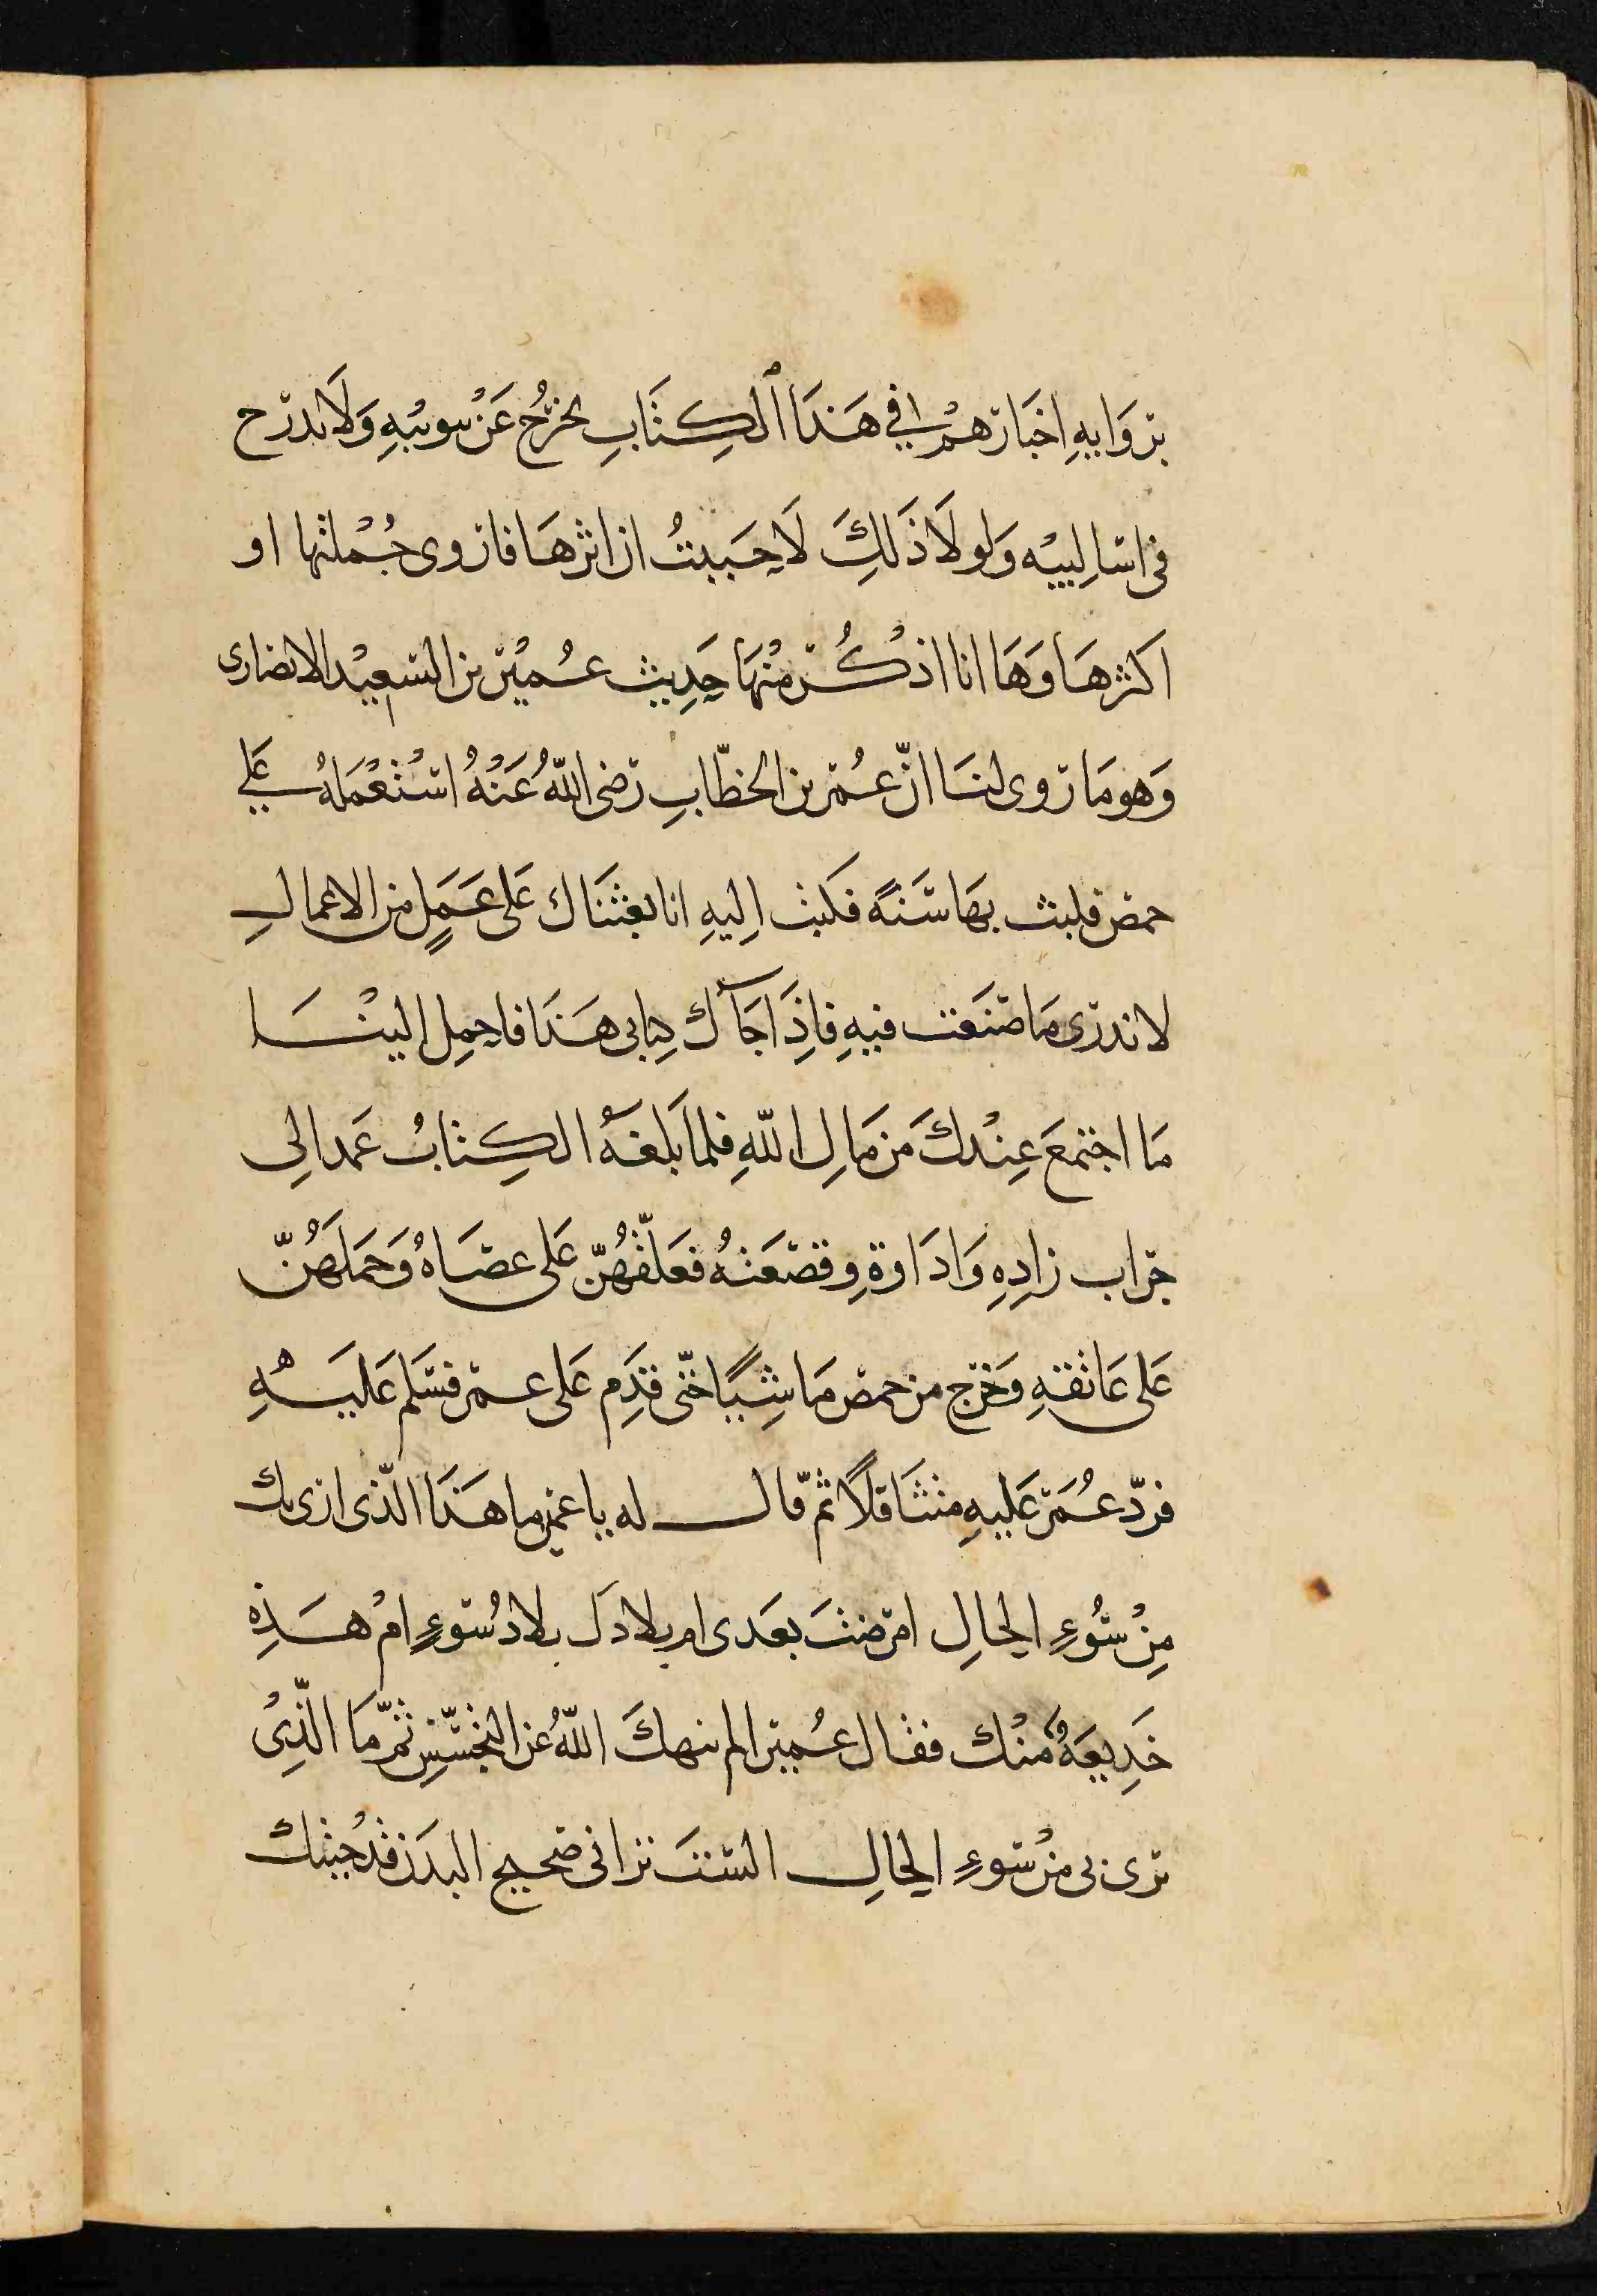 بروايه اخبارهم في هَذَا الكِتَابِ يخرجُ عَنْ سوسهِ وَلَا يدرح
فى اساليبه ولولَا ذَلِكَ لَاحَببتُ ان انثرهَا فاروى جُمْلتها او
اكثرهَا وهَا انا اذكُر منْهَا حَدِيث عُميْر بن السعيْد الانصارى
وَهو مَا روى لنَا انّ عُمر بن الخطّابِ رضى اللهُ عَنْهُ اسْتعْمَلهُ عَلي
حمص فلبث بهَا سَنَةً فكتب اِليهِ انا بعثنَاك عَلى عَمَلٍ من الاعمالِ
لا ندرى مَا صَنَعت فيهِ فاِذَا جَآك كتابى هَذَا فاحمِل الينْا
مَا اجتمعَ عِنْدكَ من مَالِ اللهِ فلما بَلغهُ الكِتابُ عَمد الى
جراب زادِهِ وَادَاوةِ وقصْعَتهُ فعَلقهُنّ عَلى عصَاهُ وَحمَلَهُنّ
عَلى عَاتقهِ وَخرج من حمص مَاشِيًا حتّى قدِم عَلى عمر فسَلم عَليْهِ
فردّ عُمَر عَليهِ متثَاقلًا ثمّ قال له يا عمير ما هَذَا الّذى ارى بك
مِنْ سُوءِ الحَالِ امرضتَ بعَدى ام بلادكَ بلادُ سُوءٍ امْ هَذِه
خَدِيعَةٌ منْك فقال عُمير الم ينهكَ اللهُ عن التجسّسِ ثمّ مَا الّذِىْ
ترى بى منْ سُوءِ الحَالِ الستَ ترانى صحيح البدَن قدْ جئتك